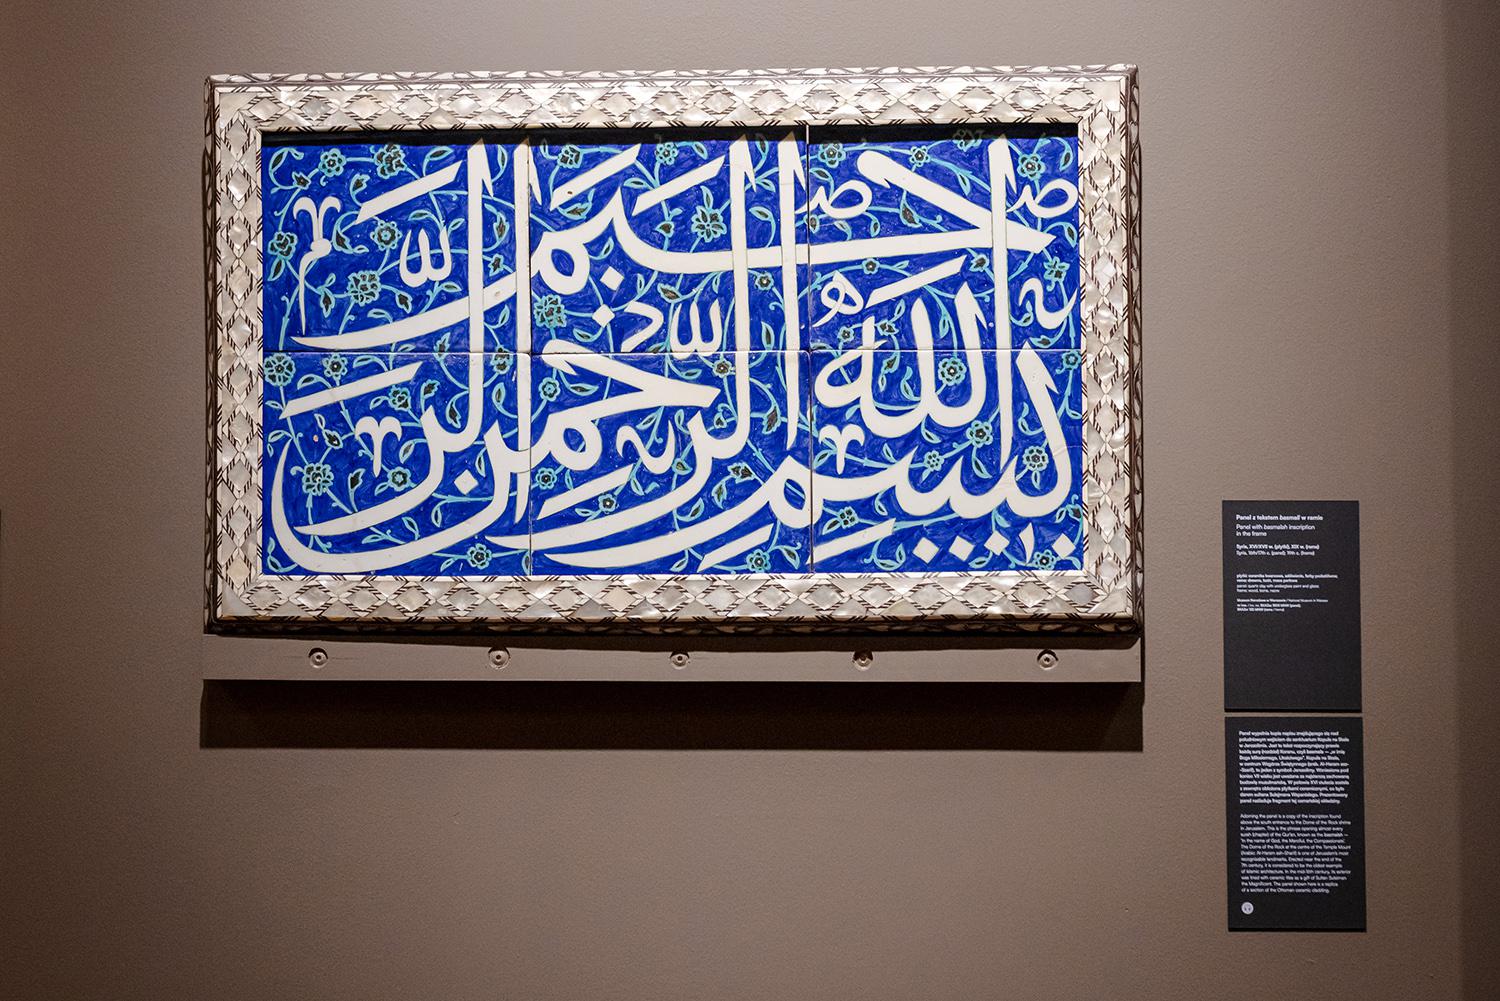 بسم الله الرحمن الرحيم
Panel z tekstem basmali w ramie
Panel with basmalah inscription
in the frame
Syria, XVI/XVII w. (płytki), XIX w. (rama)
Syria, 16th/17th c. (panel); 19th c. (frame)
panel: quartz clay with underglaze paint and glaze
frame: wood, bone, nacre
Muzeum Narodowe w Warszawie / National Museum in Warsaw
Panel wypełnia kopia napisu znajdującego się nad
południowym wejściem do sanktuarium Kopuła na Skale
w Jerozolimie. Jest to tekst rozpoczynający prawie
każdą surę (rozdział) Koranu, czyli basmala — „w imię
Boga Miłosiernego, Litościwego”. Kopuła na Skale,
w centrum Wzgórza Świątynnego (arab. Al-Haram asz-
-Szarif), to jeden z symboli Jerozolimy. Wzniesiona pod
koniec VII wieku jest uważana za najstarszą zachowaną
budowlę muzułmańską. W połowie XVI stulecia została
z zewnątrz obłożona płytkami ceramicznymi, co było
darem sułtana Sulejmana Wspaniałego. Prezentowany
panel naśladuje fragment tej osmańskiej okładziny.
Adorning the panel is a copy of the inscription found
above the south entrance to the Dome of the Rock shrine
in Jerusalem. This is the phrase opening almost every
surah (chapter) of the Qur’an, known as the basmalah —
‘In the name of God, the Merciful, the Compassionate’.
The Dome of the Rock at the centre of the Temple Mount
(Arabic: Al-Haram ash-Sharif) is one of Jerusalem’s most
recognisable landmarks. Erected near the end of the
7th century, it is considered to be the oldest example
of Islamic architecture. In the mid-16th century, its exterior
was lined with ceramic tiles as a gift of Sultan Suleiman
the Magnificent. The panel shown here is a replica
of a section of the Ottoman ceramic cladding.